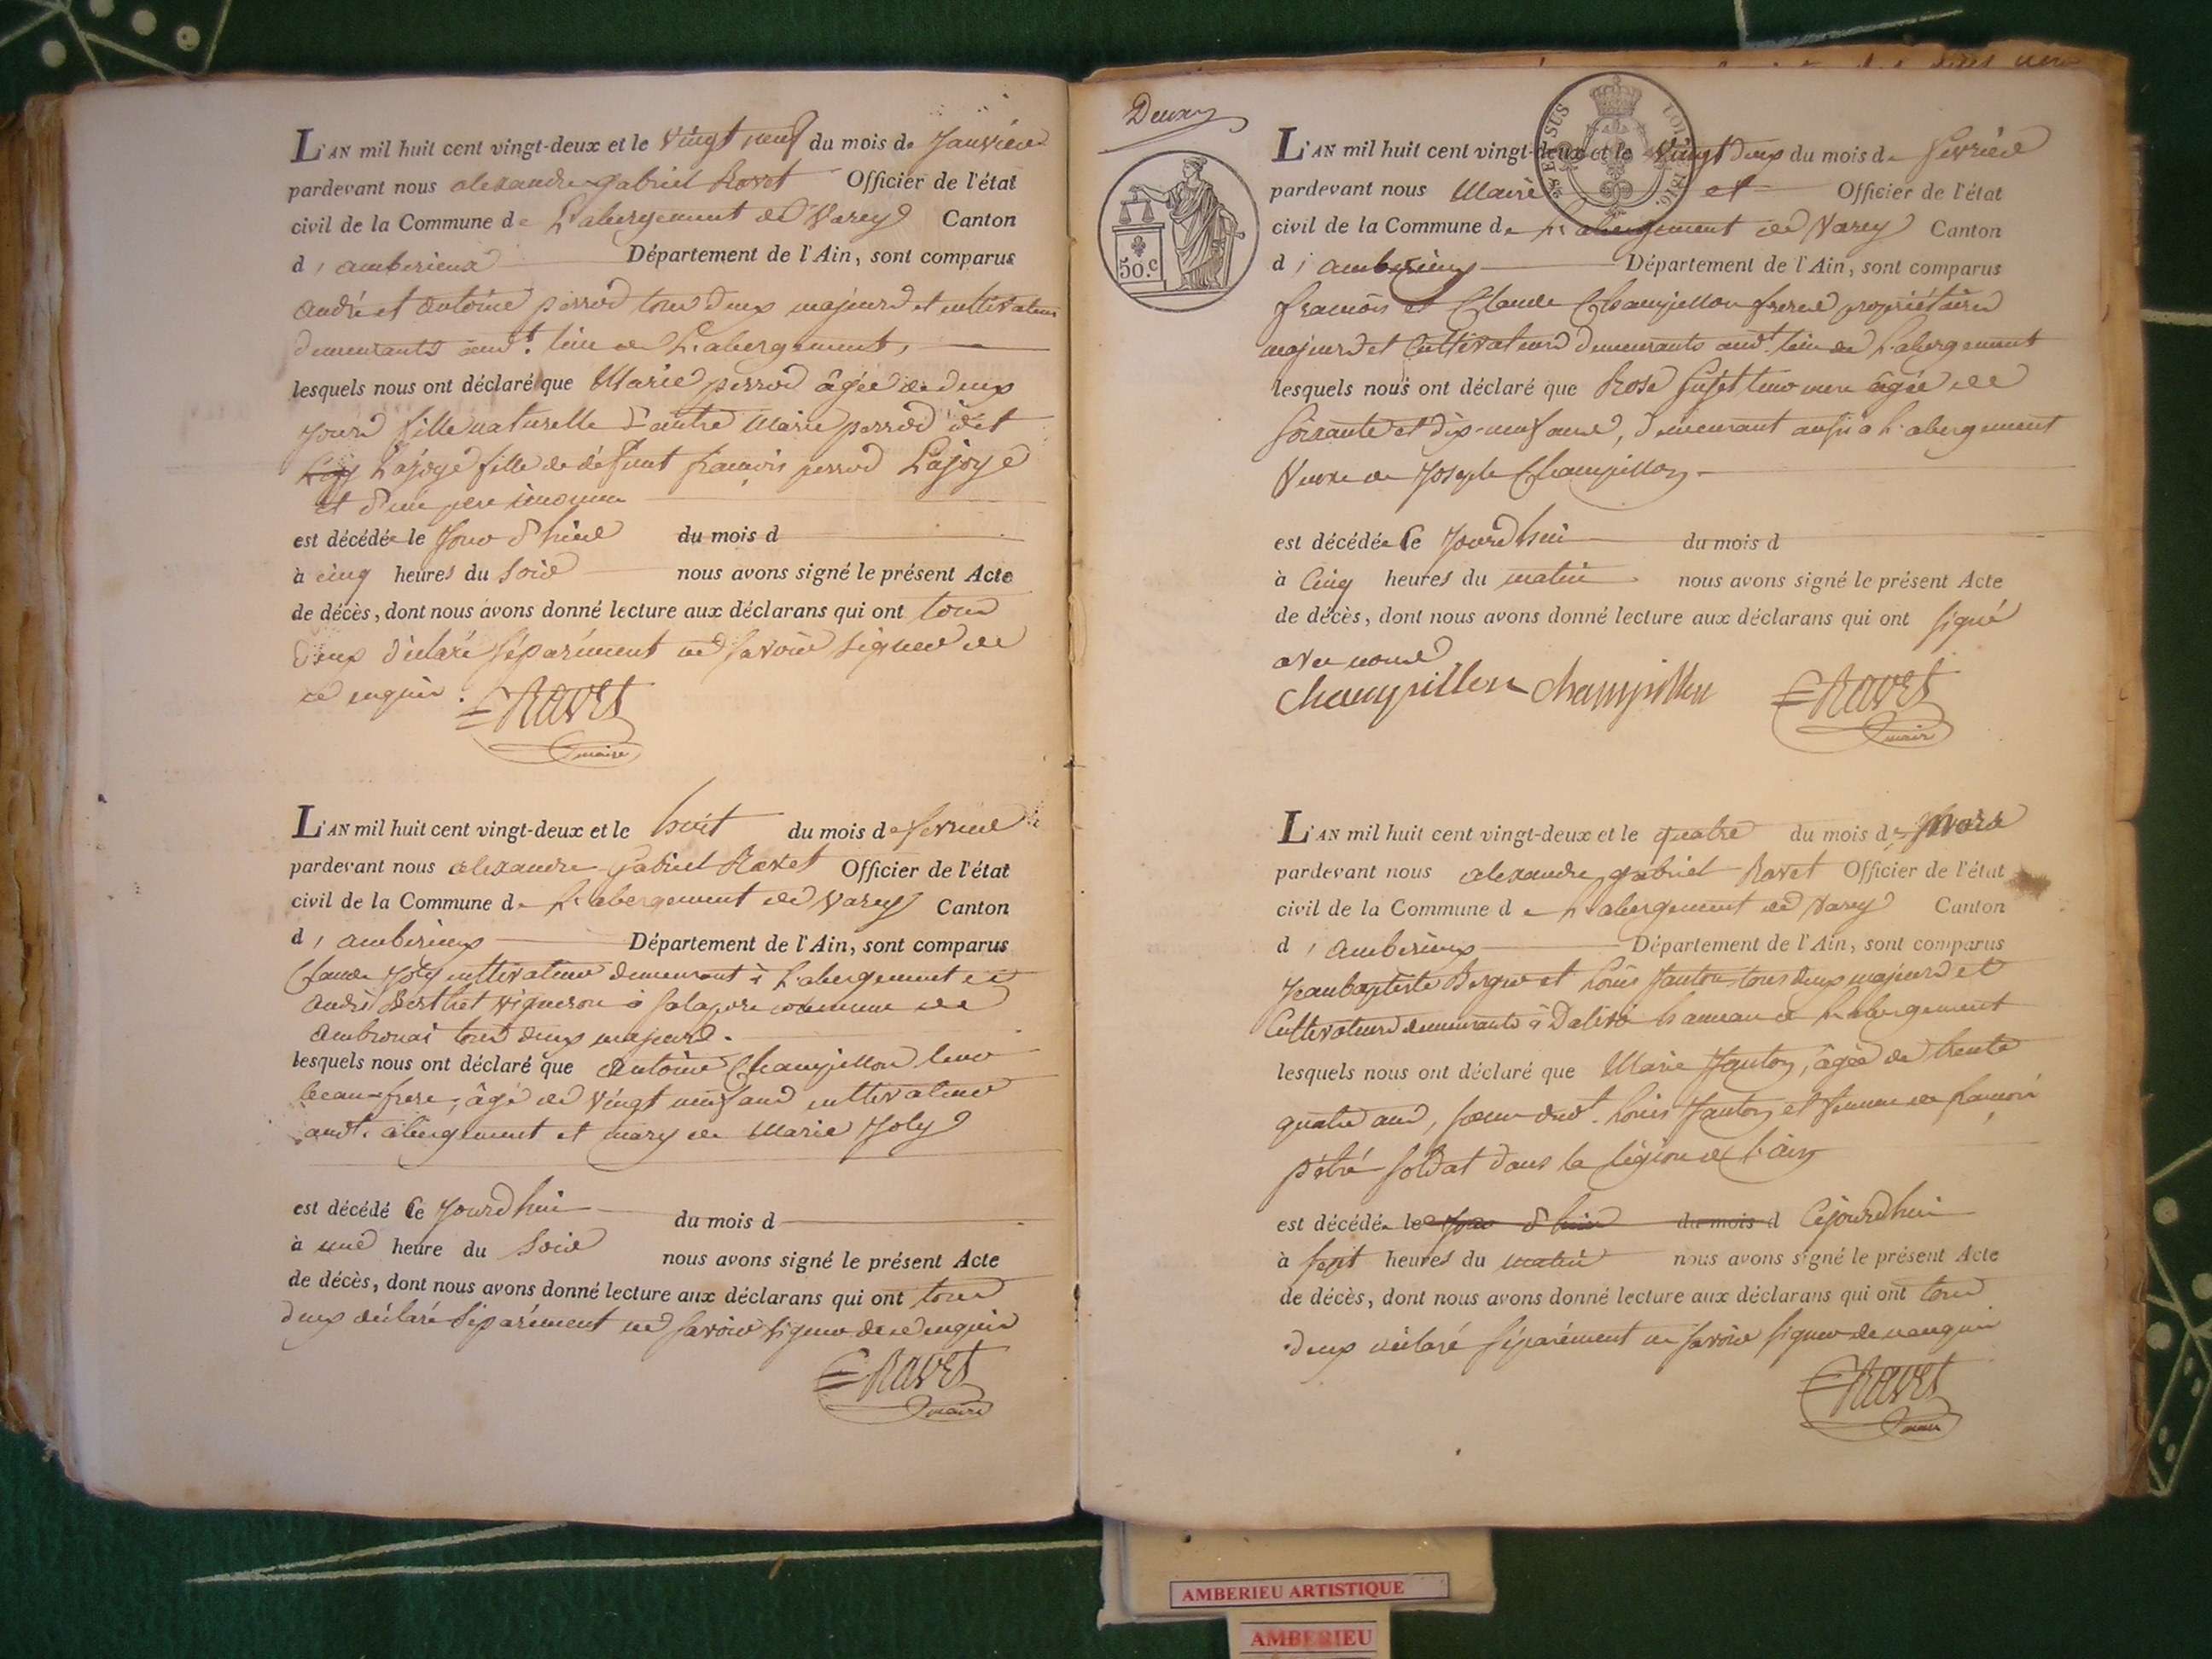 L'AN mil huit cent vingt-deux et le vingt neuf du mois de Janvier
pardevant nous alexandre gabriel Ravet Officier de l'état
civil de la Commune de L'abergement de Varey Canton
d'amberieux Département de l'Ain, sont comparus
andré et antoine perrod tous deux majeurs et cultivateurs
demeurants aud.t lieu de L'abergement,
lesquels nous ont déclaré que Marie perrod âgée de deux
jours fille naturelle d'autre Marie perrod dit
Lajoye fille de défunt françois perrod Lajoye
et d'un pere inconnu
est décédée le jour d'hier du mois d
à cinq heures du soir nous avons signé le présent Acte
de décès, dont nous avons donné lecture aux déclarans qui ont tous
deux déclaré séparément ne savoir signer de
ce enquis.
Ravet
maire
L'AN mil huit cent vingt-deux et le huit du mois de fevrier
pardevant nous alexandre Gabriel Ravet Officier de l'état
civil de la Commune de L'abergement de Varey Canton
d'amberieux Département de l'Ain, sont comparus
Claude Joly cultivateur demeurant à L'abergement et
andré Berthet vigneron à commune de
ambronai tous deux majeurs.
lesquels nous ont déclaré que Antoine Champillon leur
beau-frere, âgé de vingt neuf ans cultivateur
aud.t abergement et mary de Marie Joly
est décédé ce jourd'hui du mois d
à une heure du soir nous avons signé le présent Acte
de décès, dont nous avons donné lecture aux déclarans qui ont tous
deux déclaré séparément ne savoir signer de ce enquis
Ravet
maire
Deux
SUS LOI 1816.
50.c
L'AN mil huit cent vingt-deux et le vingt deux du mois de fevrier
pardevant nous Maire et Officier de l'état
civil de la Commune de L'abergement de Varey Canton
d'amberieux Département de l'Ain, sont comparus
françois et Claude Champillon freres propriétaires
majeurs et Cultivateurs demeurants aud.t lieu de L'abergement
lesquels nous ont déclaré que Rose leur mere âgée de
soixante et dix-neuf ans, demeurant aussi à L'abergement
Veuve de Joseph Champillon
est décédée ce jourd'hui du mois d
à Cinq heures du matin nous avons signé le présent Acte
de décès, dont nous avons donné lecture aux déclarans qui ont signé
avec nous
Champillon Champillon Ravet
maire
L'AN mil huit cent vingt-deux et le quatre du mois de Mars
pardevant nous alexandre gabriel Ravet Officier de l'état
civil de la Commune de L'abergement de Varey Canton
d'amberieux Département de l'Ain, sont comparus
Jean baptiste et Louis Janton tous deux majeurs et
Cultivateurs demeurants à hameau de L'abergement
lesquels nous ont déclaré que Marie Janton, âgée de trente
quatre ans, soeur dud.t Louis Janton et femme de françois
soldat dans la légion de l'ain
est décédée le jour d'hier du mois d Cejourd'hui
à sept heures du matin nous avons signé le présent Acte
de décès, dont nous avons donné lecture aux déclarans qui ont tous
deux déclaré séparément ne savoir signer de ce enquis
Ravet
maire
AMBERIEU ARTISTIQUE
AMBERIEU